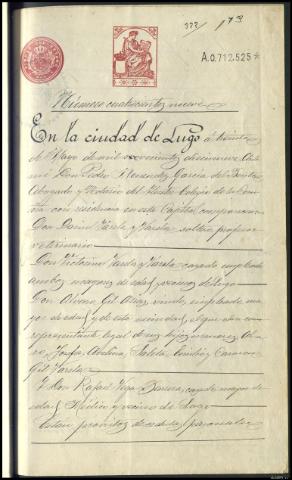 373/ 173
A.0.712.525*
Número cuatrocientos nueve
En la ciudad de Lugo á treinta
de Mayo de mil novecientos diecinueve. Ante
mi Don Pedro Menendez Garcia de
Abogado y Notario del Ilustre Colegio de la Coru-
ña con residencia en esta Capital, comparecen
Don Daniel Varela y Varela, soltero, profesor
veterinario
Don Victorino Varela y Varela, casado, empleado
ambos mayores de edad y vecinos de Lugo
Don Alvaro Gil viudo, empleado, ma-
yor de edad y de esta vecindad, el que como
representante legal de sus hijos menores Alva-
ro, Josefa, Avelina, Julita, Emilio y Carmen
Gil Varela
Y Don Rafael Vega Barrera, casado, mayor de
edad, Médico y vecino de Lugo
Están provistos de cédulas personales